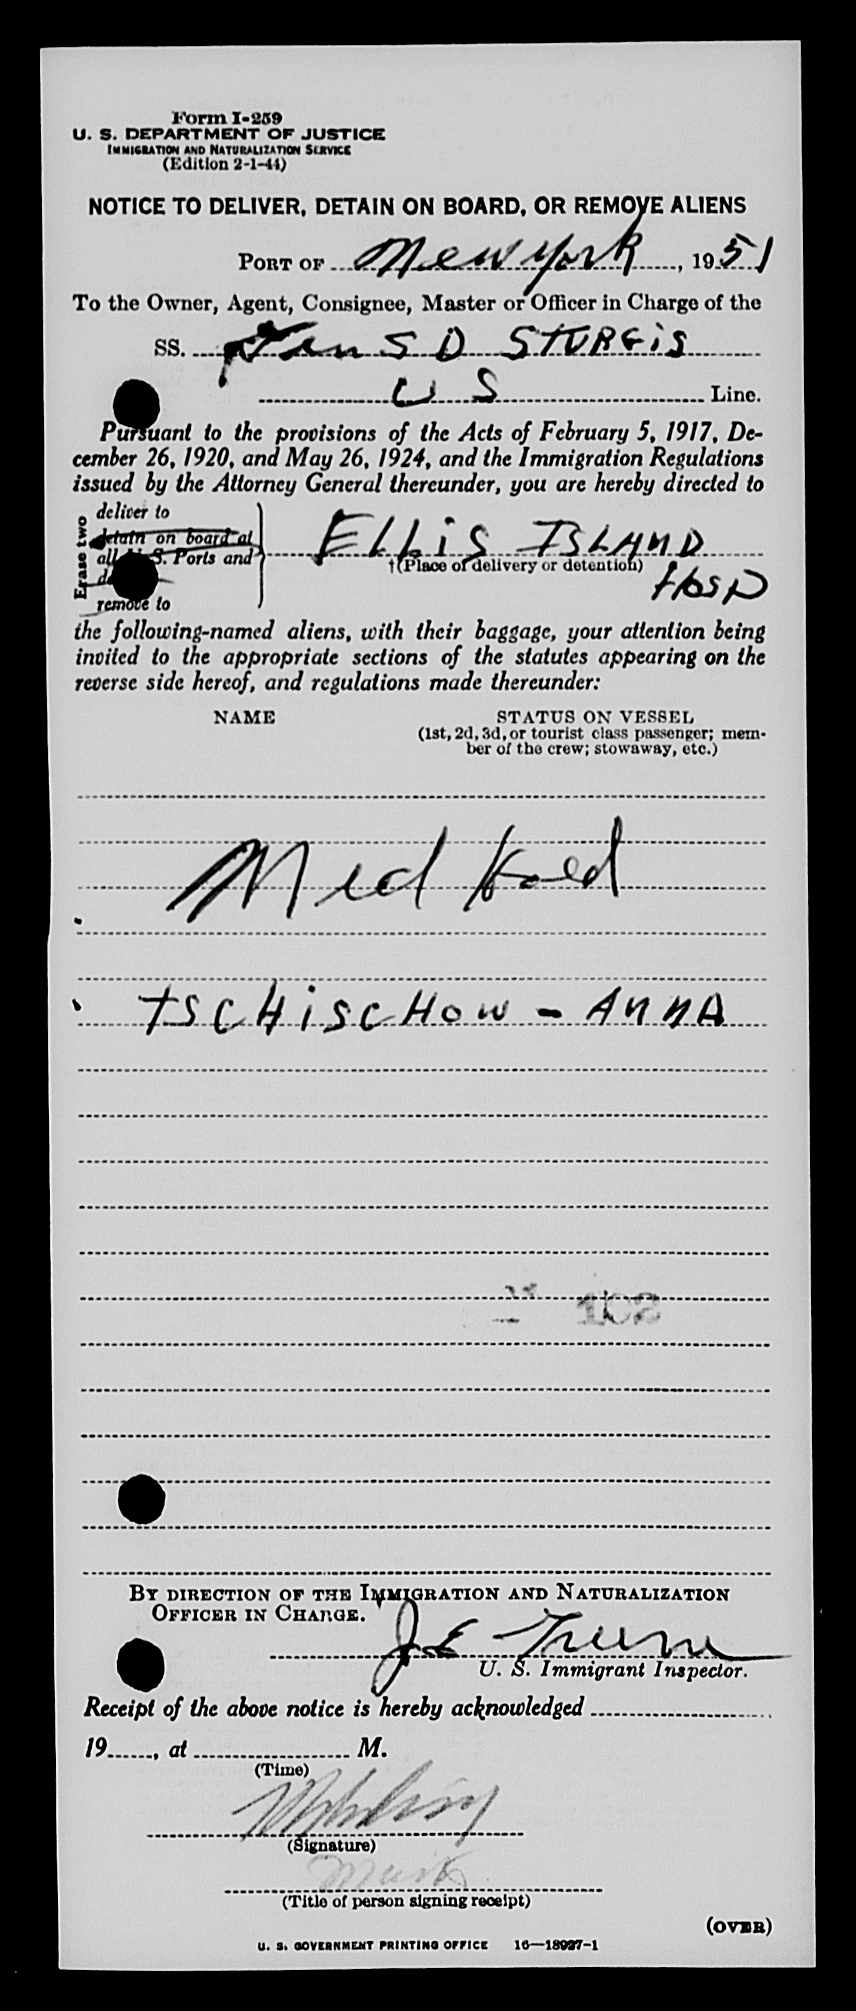 Form I-259
U. S. DEPARTMENT OF JUSTICE
IMMIGRATION AND NATURALIZATION SERVICE
(Edition 2-1-44)
NOTICE TO DELIVER, DETAIN ON BOARD, OR REMOVE ALIENS
PORT OF New York, 1951
To the Owner, Agent, Consignee, Master or Officer in Charge of the
SS. Gen S D STURGIS
U S Line.
Pursuant to the provisions of the Acts of February 5, 1917, De-
cember 26, 1920, and May 26, 1924, and the Immigration Regulations
issued by the Attorney General thereunder, you are hereby directed to
Erase two
deliver to
detain on board at
all U. S. Ports and
remove to
ELLIS ISLAND
†(Place of delivery or detention)
HOSP
the following-named aliens, with their baggage, your attention being
invited to the appropriate sections of the statutes appearing on the
reverse side hereof, and regulations made thereunder:
NAME STATUS ON VESSEL
(1st, 2d, 3d, or tourist class passenger; mem-
ber of the crew; stowaway, etc.)
Med Hold
TSCHISCHOW - ANNA
102
BY DIRECTION OF THE IMMIGRATION AND NATURALIZATION
OFFICER IN CHARGE.
J E
U. S. Immigrant Inspector.
Receipt of the above notice is hereby acknowledged
19......, at M.
(Time)
(Signature)
(Title of person signing receipt)
(OVER)
U. S. GOVERNMENT PRINTING OFFICE 16—18927-1